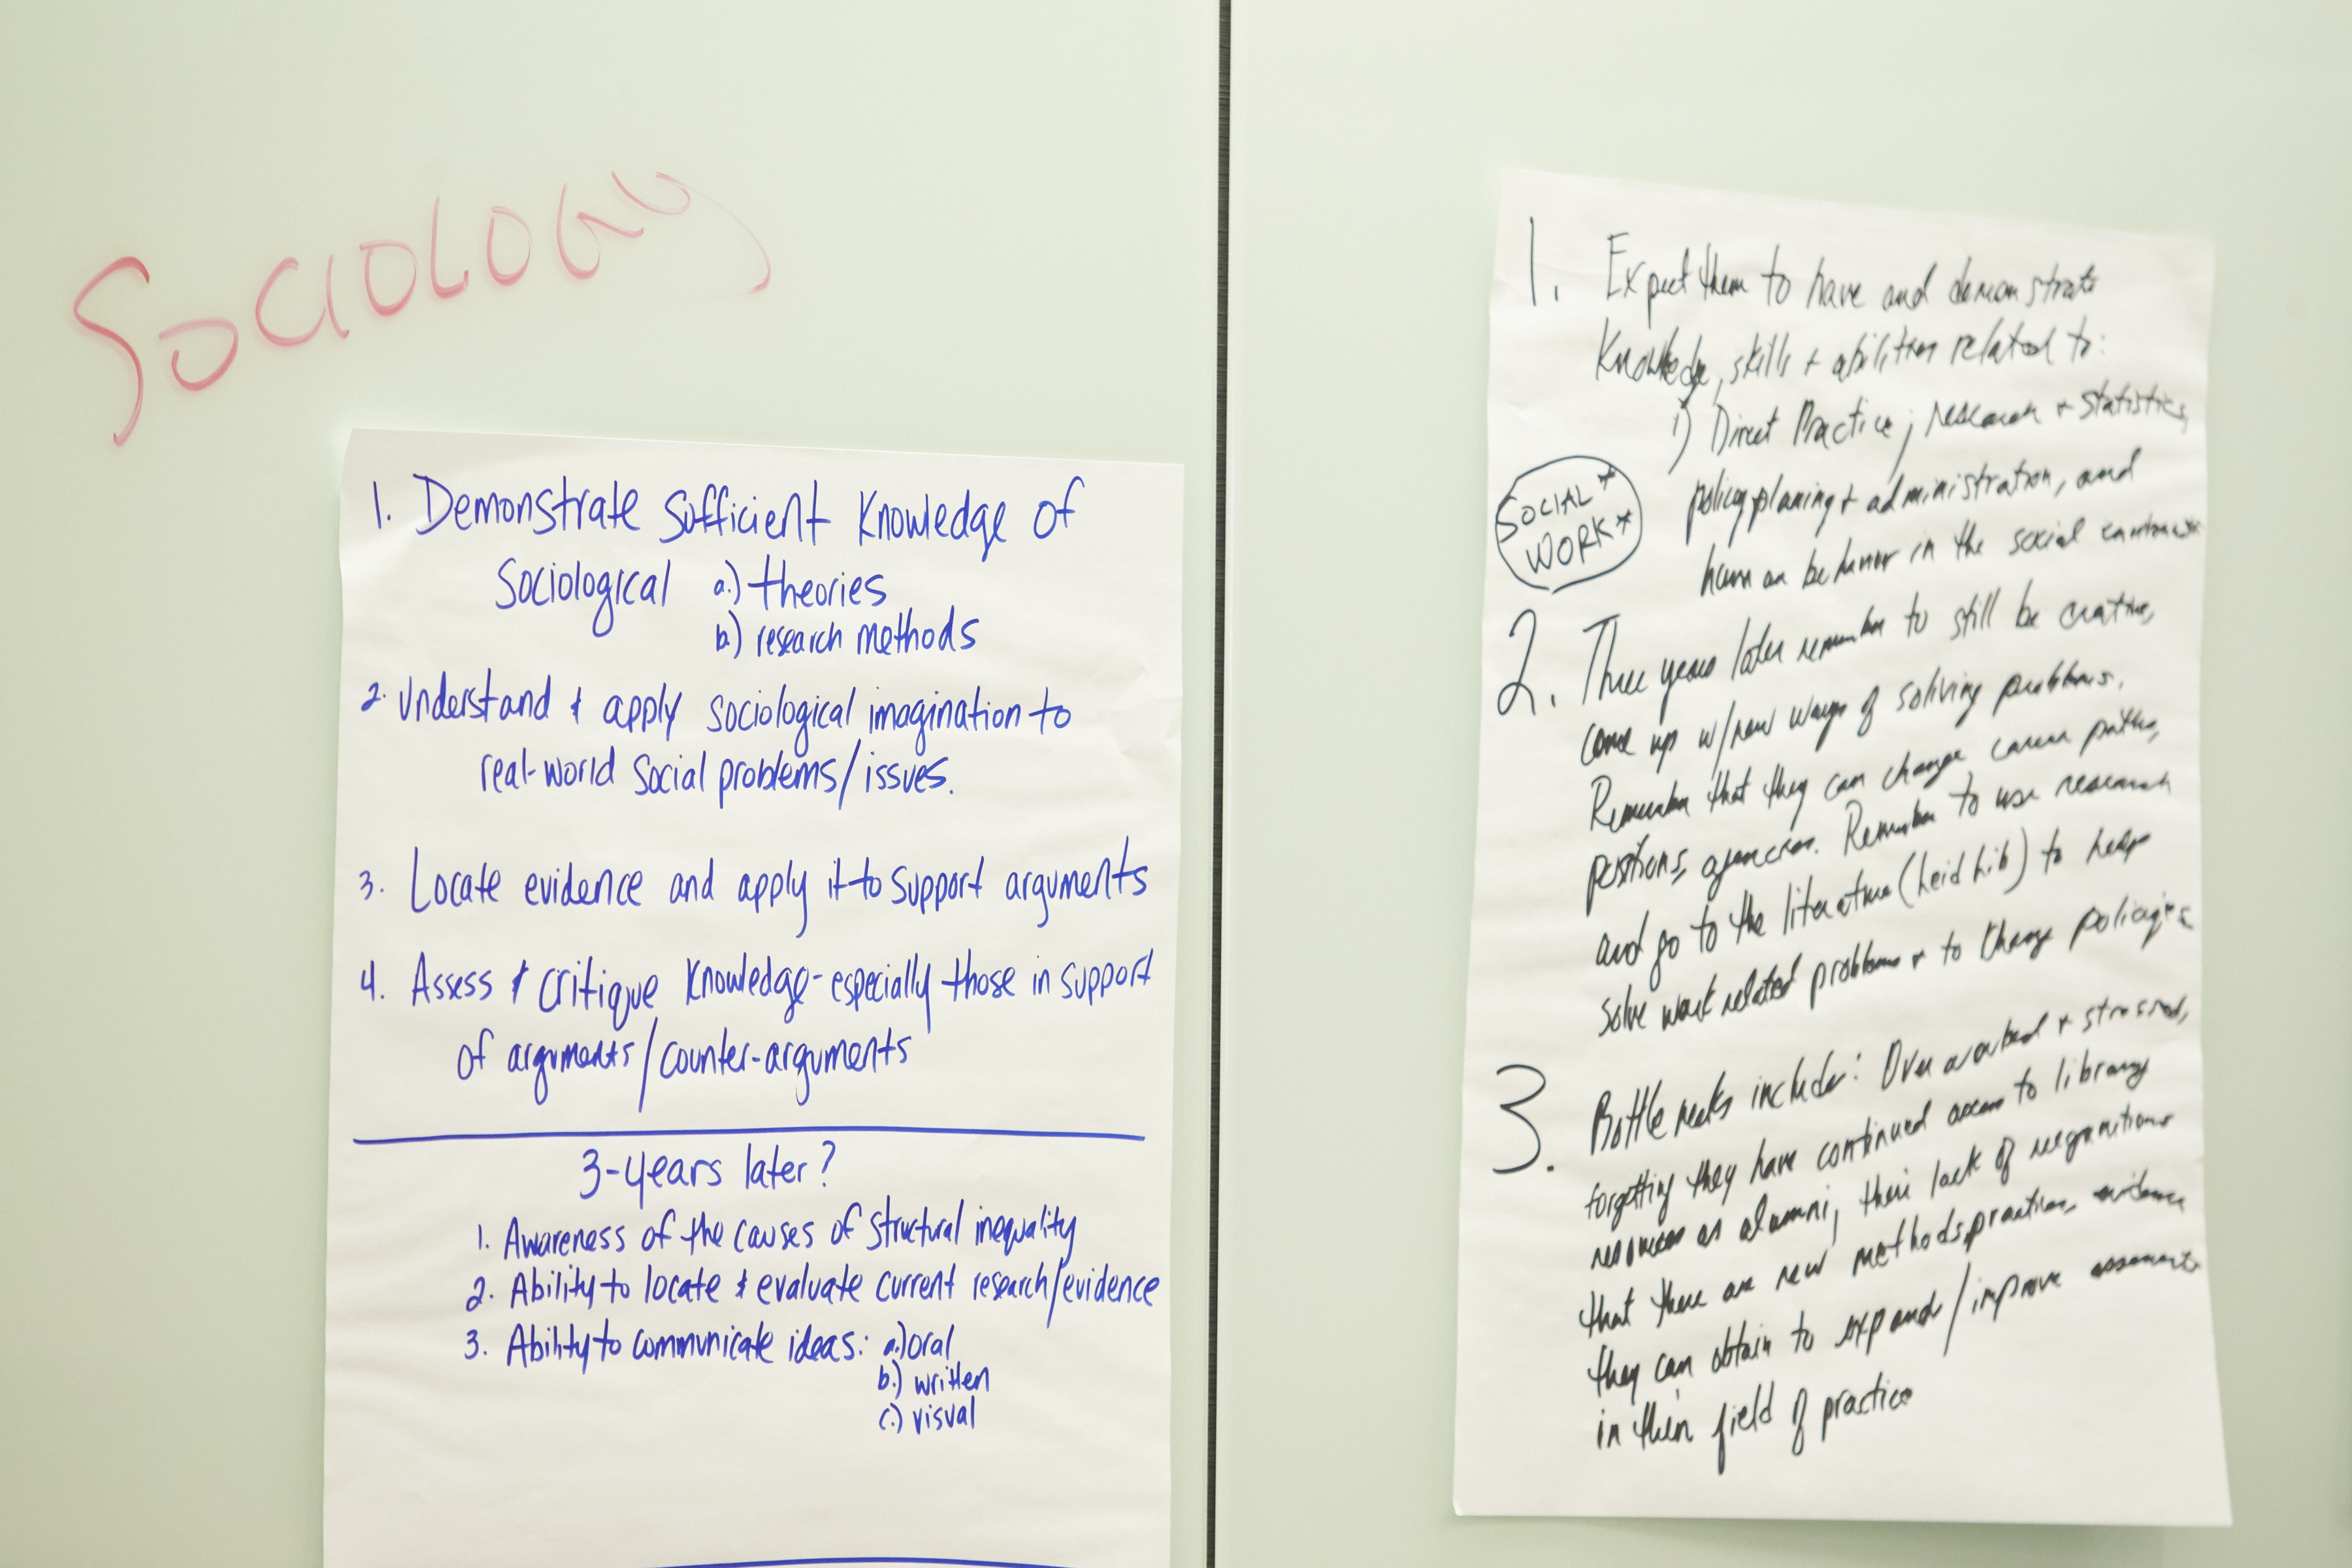 SOCIOLOGY
1. Demonstrate Sufficient Knowledge of
Sociological a.) theories
b.) research methods
2. Understand & apply sociological imagination to
real-world social problems/issues.
3. Locate evidence and apply it to support arguments
4. Assess & critique knowledge-especially those in support
of arguments/counter-arguments
3-years later?
1. Awareness of the causes of structural inequality
2. Ability to locate & evaluate current research/evidence
3. Ability to communicate ideas: a.) oral
b.) written
c.) visual
1. Expect them to have and demonstrate
Knowledge, skills + abilities related to:
1) Direct Practice; research + statistics,
policy planing + administration, and
human behavior in the social
SOCIAL *
WORK *
2. Three years later remember to still be creative,
come up w/new ways of soliving problems.
Remember that they can change career paths,
positions, agencies. Remember to use research
and go to the literature ( ) to help
solve work related problems + to change policies
3. Bottle necks include: Over worked + stressed,
forgetting they have continued access to library
resources as alumni, their lack of
that there are new methods, practices, evidence
they can obtain to expand/improve
in their field of practice